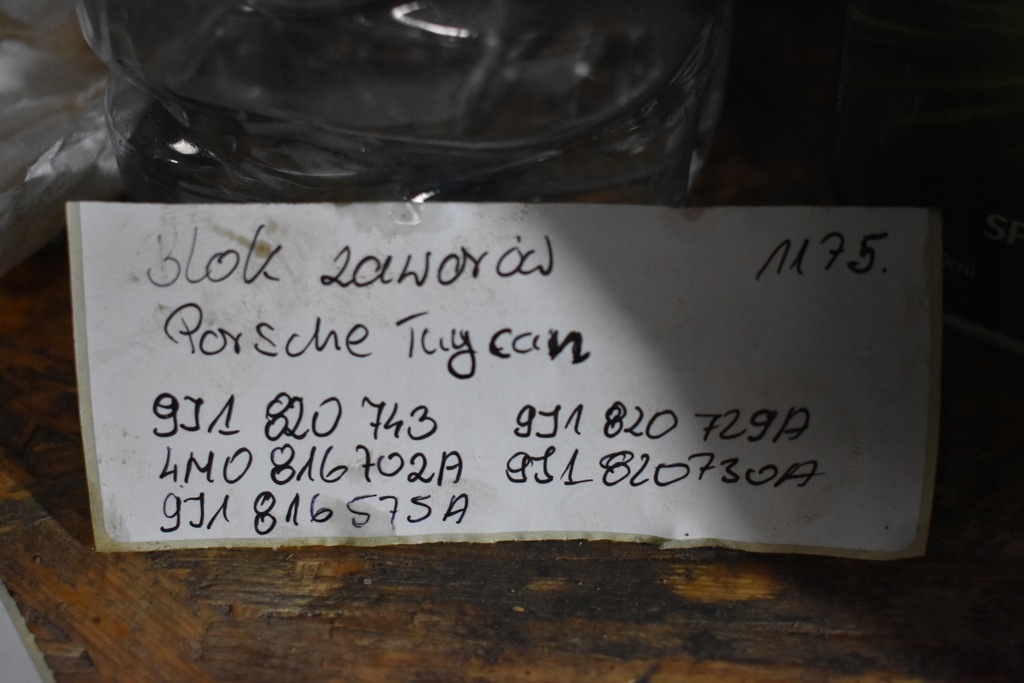 Blok zaworów 1175.
Porsche Taycan
9J1 820 743 9J1 820 729A
4M0 816702A 9J1 820730A
9J1 816 575A
SP
ml